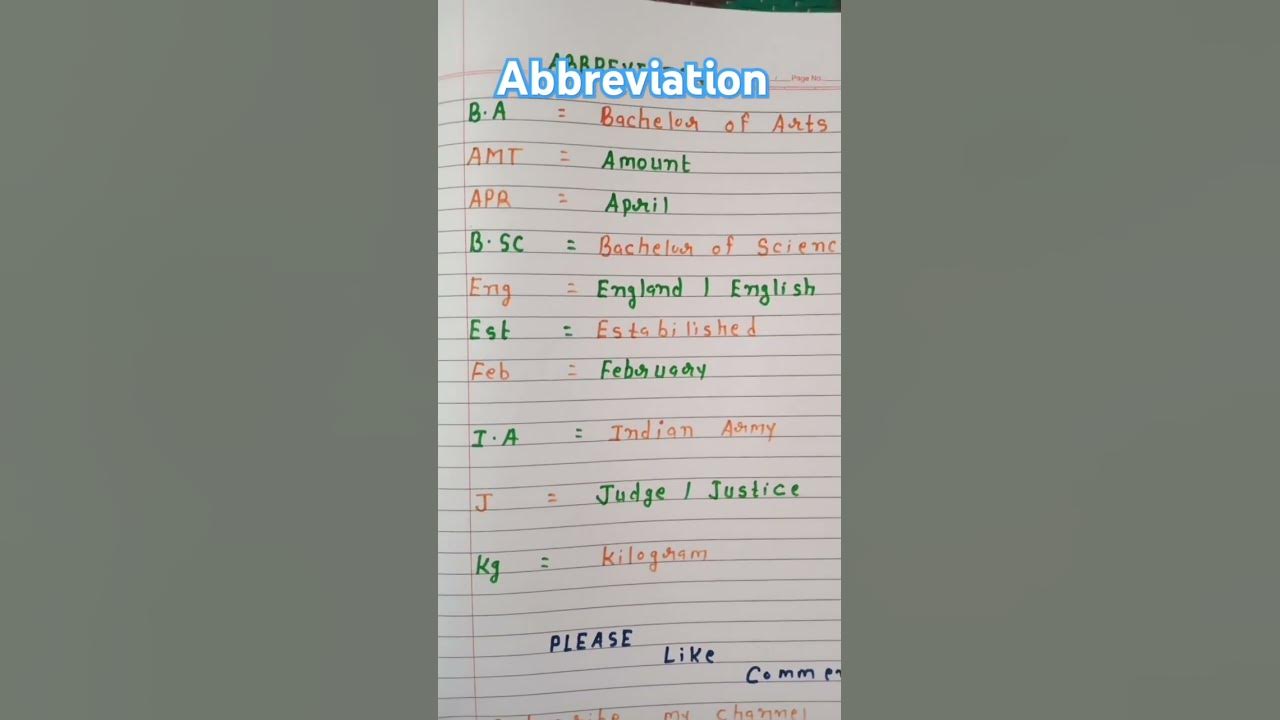 Abbreviation
Page No.
B.A = Bachelor of Arts
AMT = Amount
APR = April
B.SC = Bachelor of Scienc
Eng = England / English
Est = Estabilished
Feb = February
I.A = Indian Army
J = Judge / Justice
Kg = Kilogram
PLEASE
Like
Commen
my channel